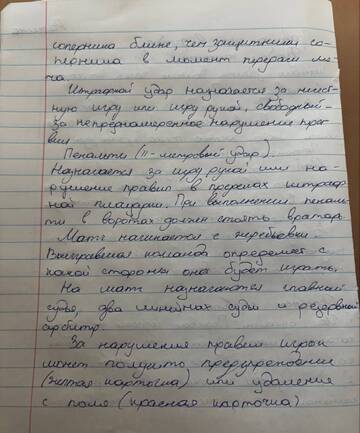 соперника ближе, чем защитники со-
перника в момент передачи мя-
ча.
Штрафной удар назначается за жест-
кую игру или игру рукой, свободный-
за непреднамеренное нарушение пра-
вил
Пенальти (11-метровый удар).
Назначается за игру рукой или на-
рушение правил в пределах штраф-
ной площадки. При выполнении пеналь-
ти в воротах должен стоять вратарь
Матч начинается с жеребьевки.
Выигравшая команда определяет с
какой стороны она будет играть.
На матч назначаются главный
судья, два линейных судьи и резервный
арбитр.
За нарушения правил игрок
может получить предупреждение
(желтая карточка) или удаление
с поля (красная карточка)